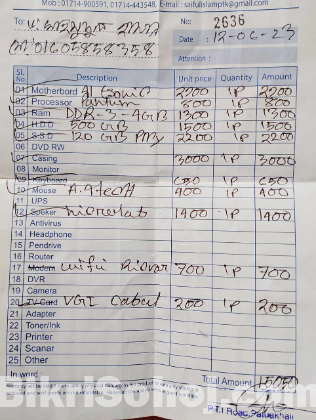 Mob : 01714-900591, 01714-443548, E-mail : saifulislamptk@gmail.com
To: No: 2636
01605858358 Date : 12-06-23
Attention :
Sl. No. Description Unit price Quantity Amount
01 Motherbord 2200 1P 2200
02 Processor Pantum 800 1P 800
03 Ram DDR-3-4GB 1300 1P 1300
04 H.D.D 500 GB 1500 1P 1500
05 S.S.D 120 GB 2200 1P 2200
06 DVD RW
07 Casing 3000 1P 3000
08 Monitor
09 Keyboard 650 1P 650
10 Mouse A-4tech 400 1P 400
11 UPS
12 Speker 1400 1P 1400
13 Antivirus
14 Headphone
15 Pendrive
16 Router
17 Modem wifi 700 1P 700
18 DVR
19 Camera
20 TV Card VGI Cabel 200 1P 200
21 Adapter
22 Toner/Ink
23 Printer
24 Scanar
25 Other
In word Total Amount
BikriShop.Com
P.T.I Road, Patuakhali